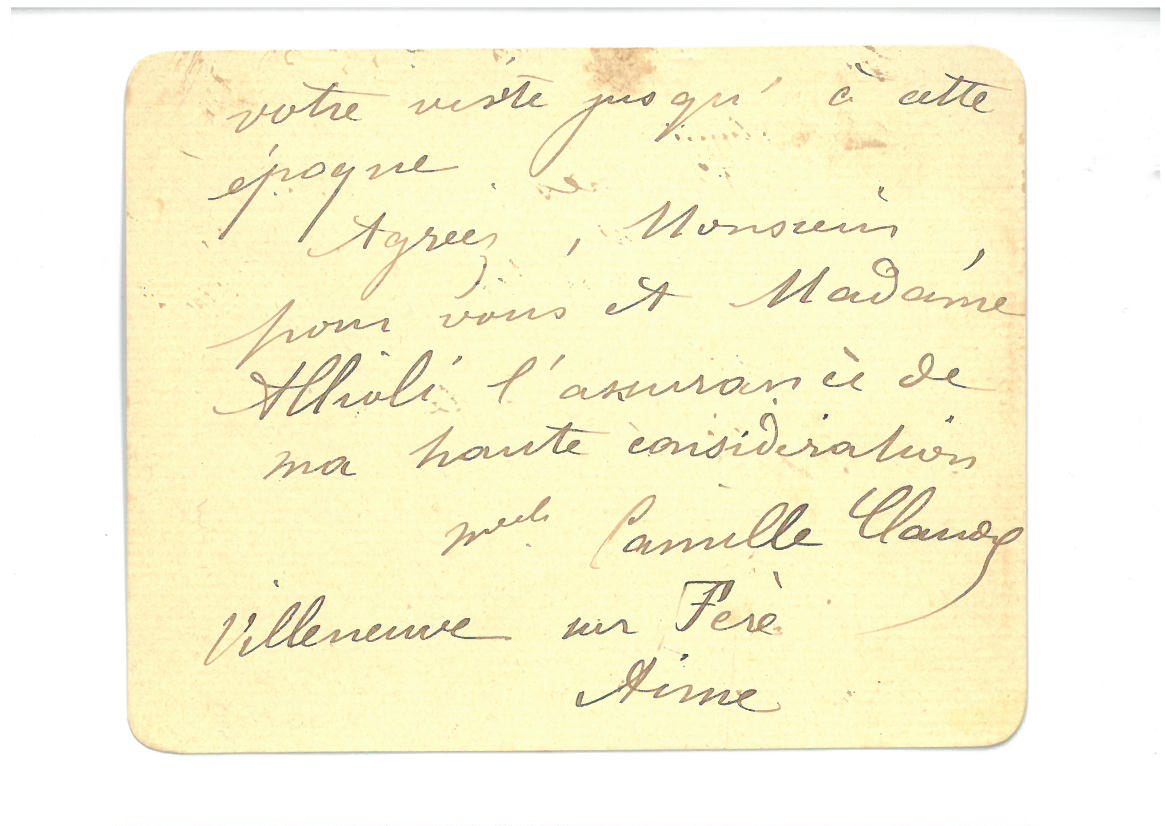 votre visite jusqu' à cette
époque
Agréez, Monsieur,
pour vous et Madame
Allioli l'assurance de
ma haute considération
Melle Camille Claudel
Villeneuve sur Fère
Aisne